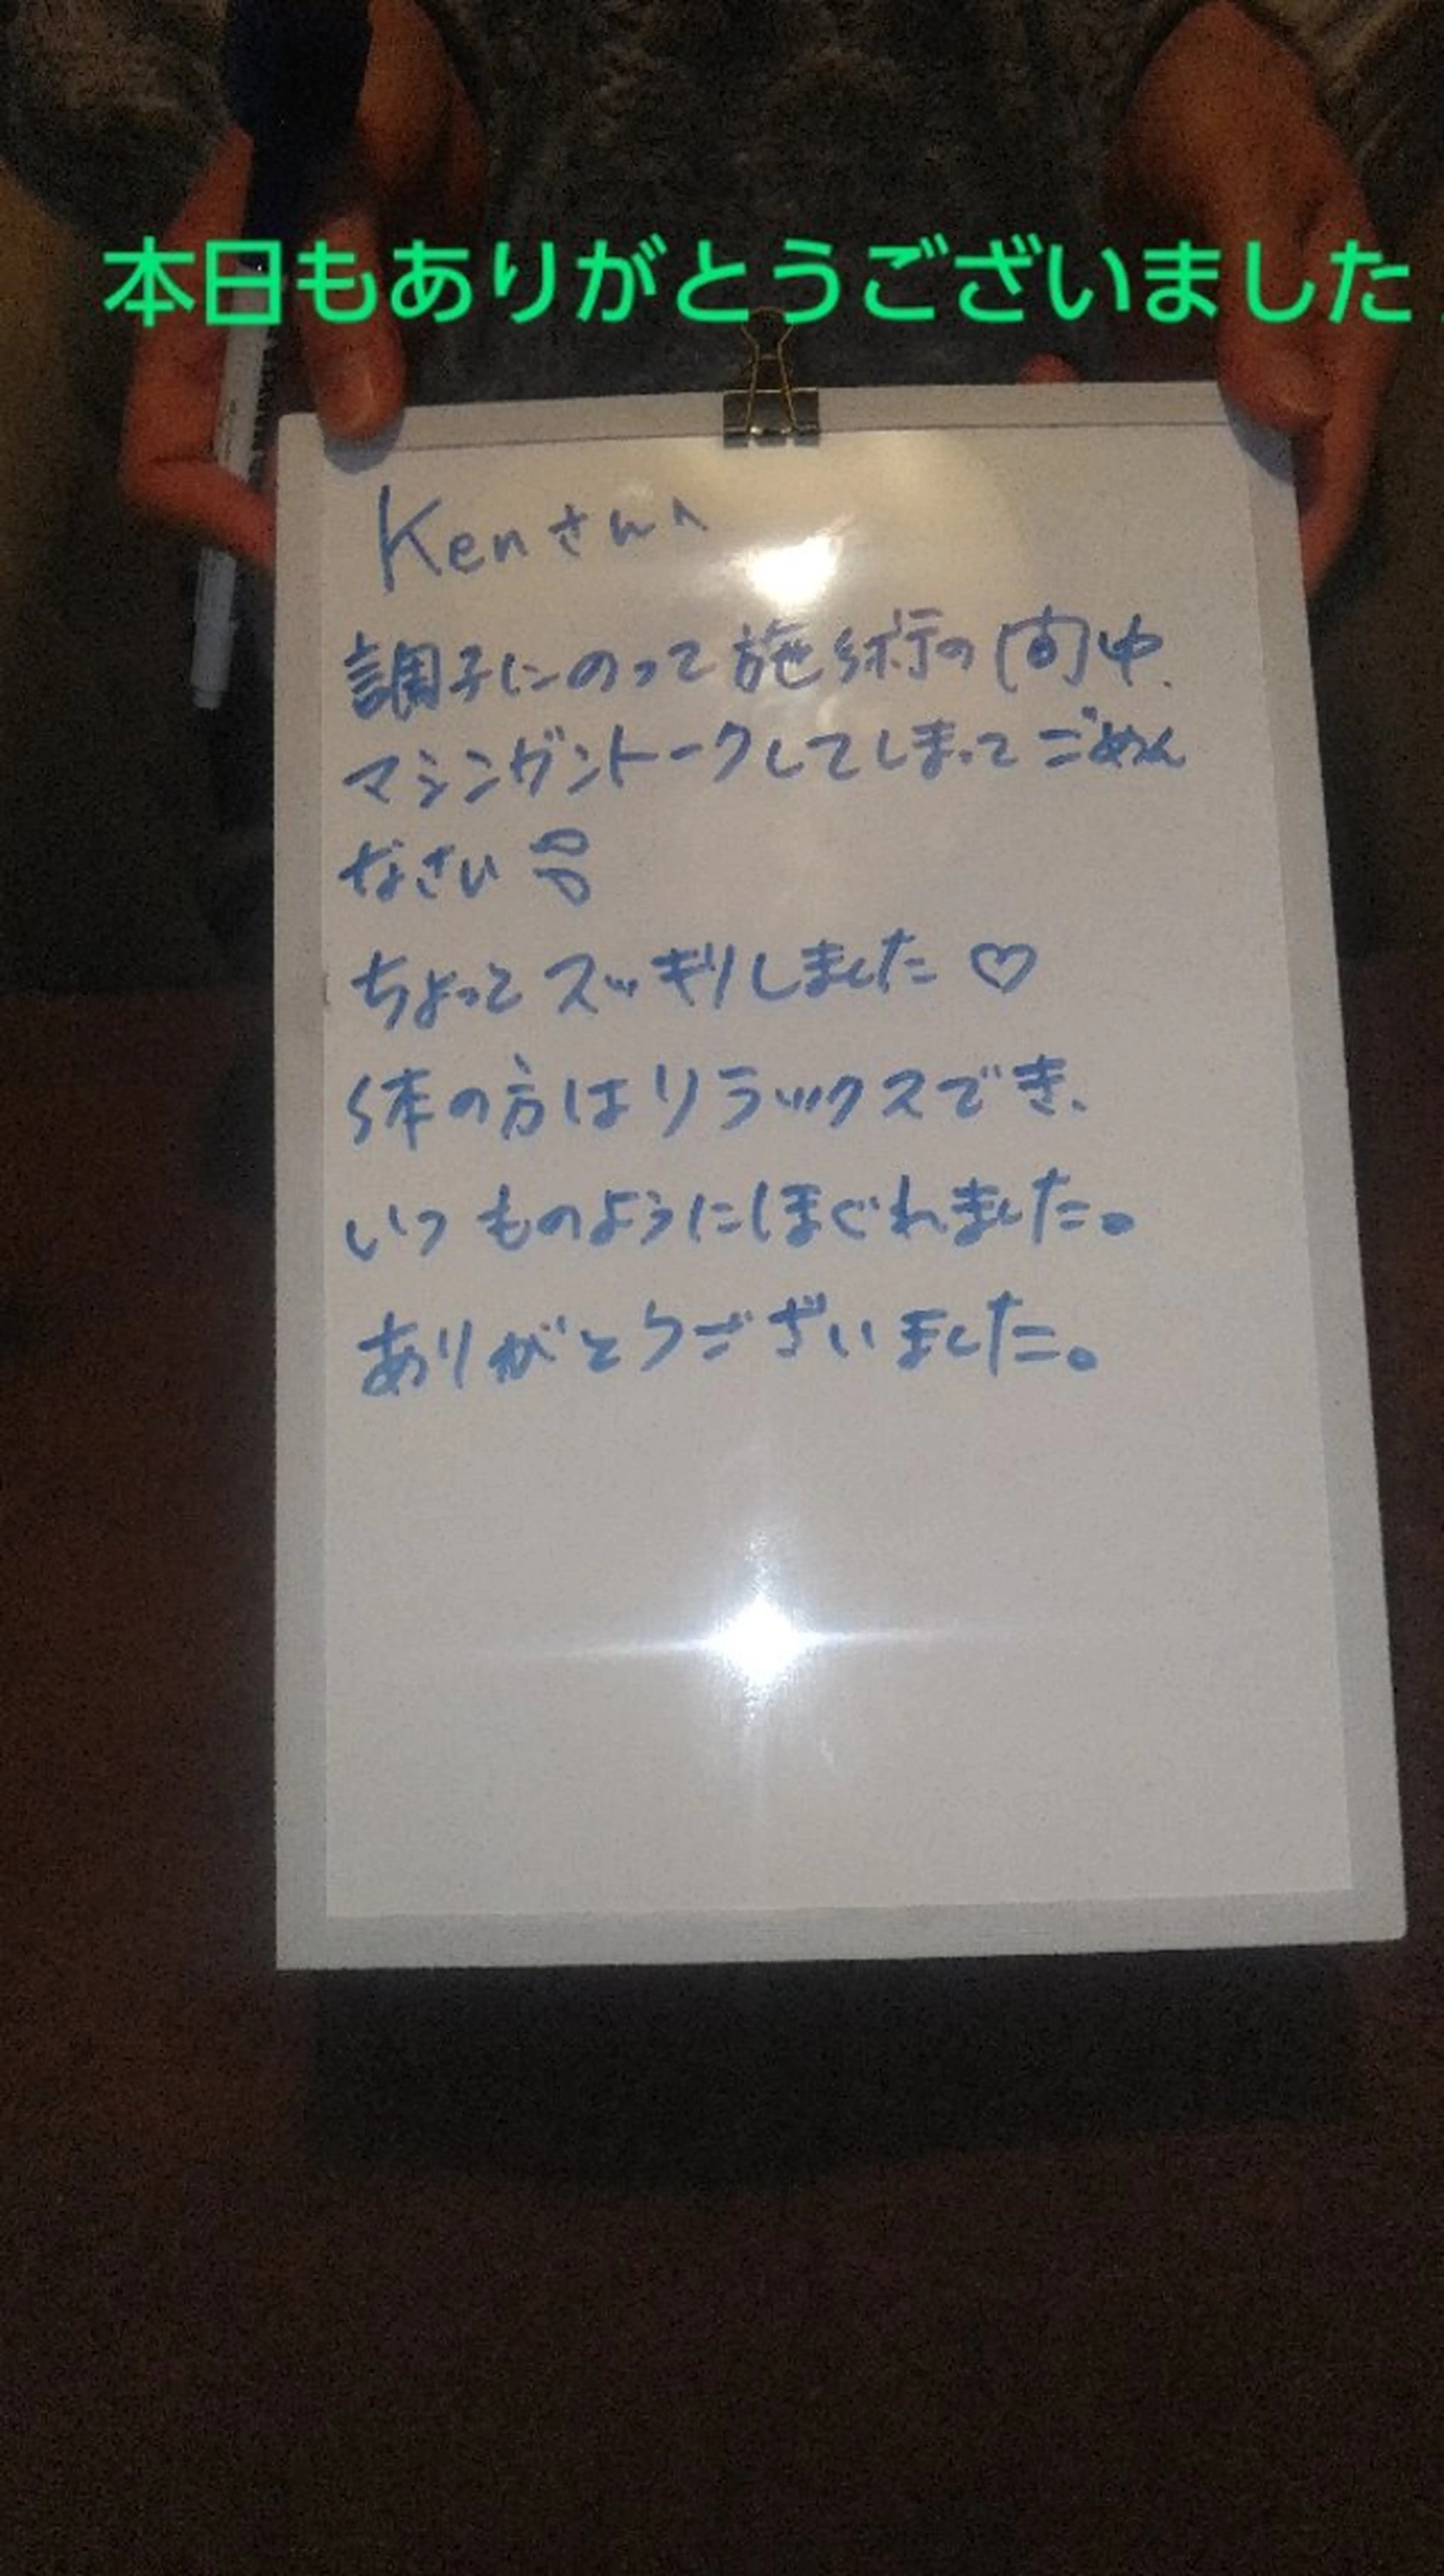 本日もありがとうございました
Kenさんへ
調子にのって施術の間中、
マシンガントークしてしまってごめん
なさい
ちょっとスッキリしました♡
体の方はリラックスでき、
いつものようにほぐれました。
ありがとうございました。